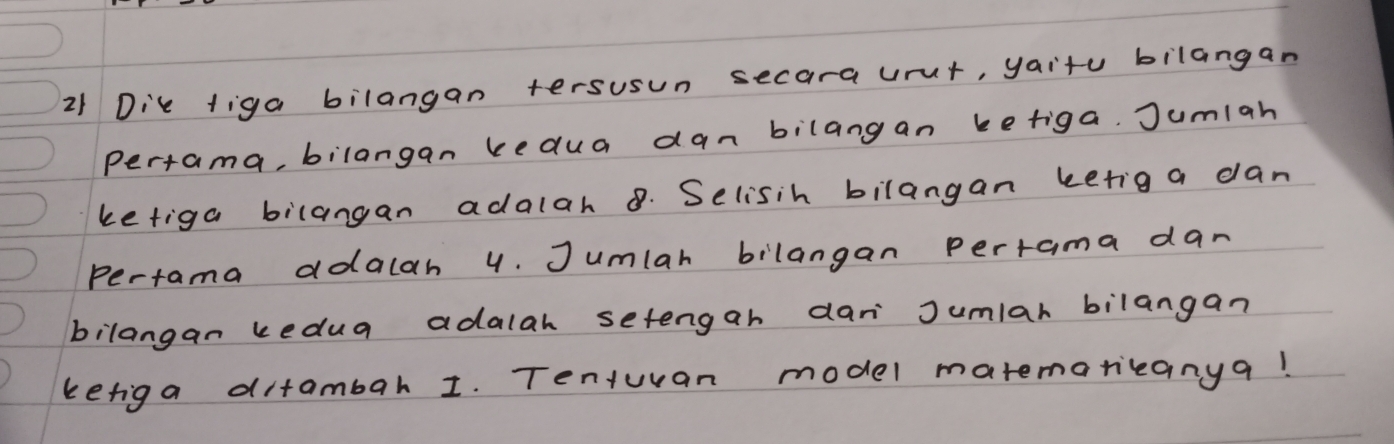 2) Dik tiga bilangan tersusun secara urut, yaitu bilangan
pertama, bilangan kedua dan bilangan ketiga. Jumlah
ketiga bilangan adalah 8. Selisih bilangan ketiga dan
pertama adalah 4. Jumlah bilangan pertama dan
bilangan kedua adalah setengah dari Jumlah bilangan
ketiga ditambah 1. Tentukan model matematikanya!